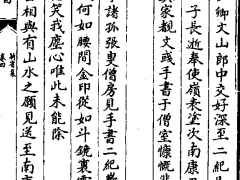 卿文山郎中交好深至二紀
子長近奉使嶺表塗次南康
家覩文彧手書于僧室慷慨悲
諸孤張臬僧房見手書二紀
何如腰間金印從如斗鏡裏
笑我塵心唯此未能除
相與有山水之願見送至南
卷四